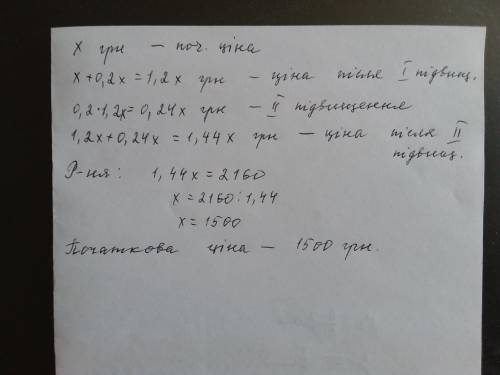 х грн — поч. ціна
х+0,2х=1,2х грн — ціна після I підвищ.
0,2·1,2х=0,24х грн — II підвищення
1,2х+0,24х=1,44х грн — ціна після II
підвищ.
Р-ня: 1,44х=2160
х=2160:1,44
х=1500
Початкова ціна — 1500 грн.